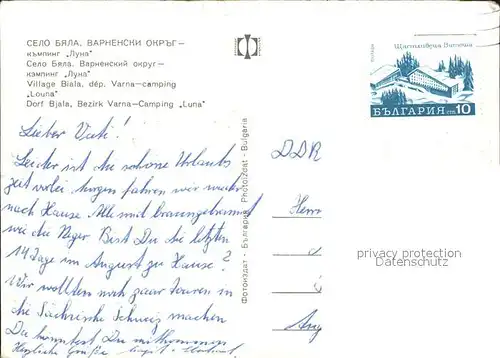 СЕЛО БЯЛА, ВАРНЕНСКИ ОКРЪГ—
къмпинг „Луна"
Село Бяла. Варненский округ—
кэмпинг „Луна"
Village Biala, dép. Varna—camping
„Louna"
Dorf Bjala, Bezirk Varna—Camping „Luna"
Щастливеца Витоша
БЪЛГАРИЯ СТ. 10
Lieber Vati!
Leider ist die schöne Urlaubs
zeit vorbei morgen fahren wir wieder
nach Hause. Alle sind braungebrannt
wie die Neger. Bist Du die letzten
14 Tage im August zu Hause?
Wir wollten noch paar Touren in
die Sächsische Schweiz machen
Du könntest Du mitkommen
Herzliche Grüße
Фотоиздат - България Photoizdat - Bulgaria
DDR
Herrn
privacy protection
Datenschutz